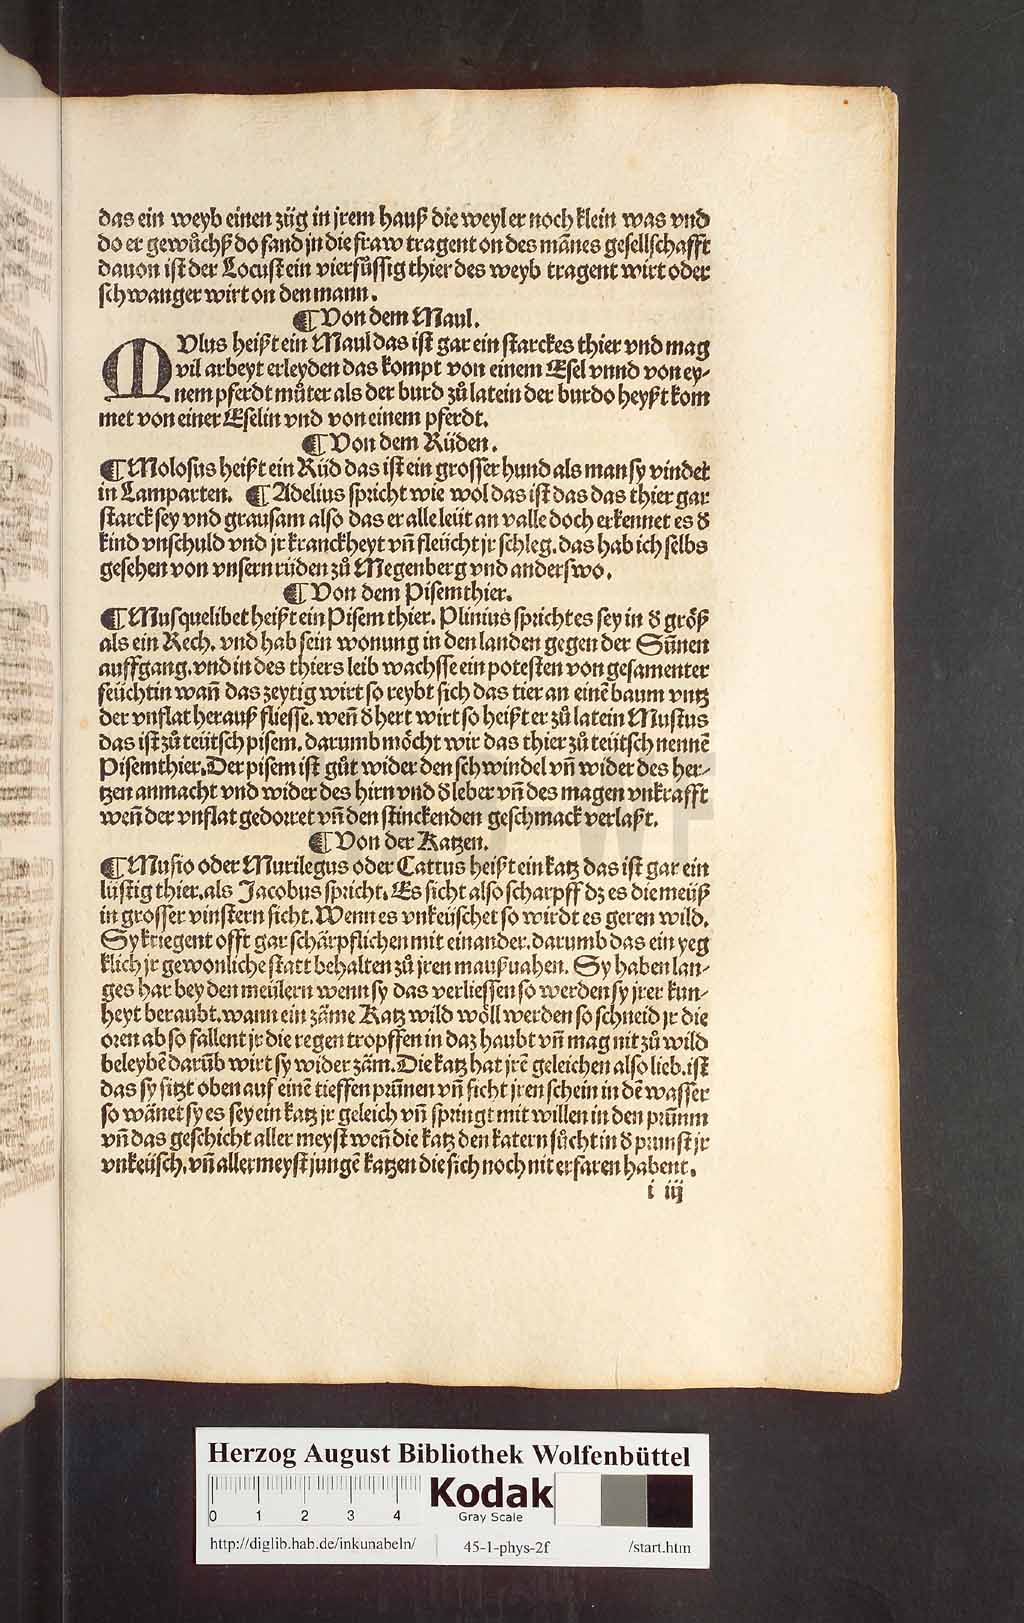 das ein weyb einen züg in jrem hauß die weyl er noch klein was vnd
do er gewůchß do fand jn die fraw tragent on des mãnes gesellschafft
dauon ist der Locust ein vierfůssig thier des weyb tragent wirt oder
schwanger wirt on den mann.
¶ Von dem Maul.
MVlus heißt ein Maul das ist gar ein starckes thier vnd mag
vil arbeyt erleyden das kompt von einem Esel vnnd von ey⸗
nem pferdt můter als der burd zů latein der burdo heyßt kom
met von einer Eselin vnd von einem pferdt.
¶ Von dem Rüden.
¶ Molosus heißt ein Rüd das ist ein grosser hund als man sy vindet
in Lamparten. ¶ Adelius spricht wie wol das ist das das thier gar
starck sey vnd grausam also das er alle leüt an valle doch erkennet es ď
kind vnschuld vnd jr kranckheyt vñ fleücht jr schleg. das hab ich selbs
gesehen von vnsern rüden zů Megenberg vnd anderswo.
¶ Von dem Pisemthier.
¶ Musquelibet heißt ein Pisem thier. Plinius spricht es sey in ď größ
als ein Rech. vnd hab sein wonung in den landen gegen der Sũnen
auffgang. vnd in des thiers leib wachsse ein potesten von gesamenter
feüchtin wañ das zeytig wirt so reybt sich das tier an einẽ baum vntz
der vnflat herauß fliesse. weñ ď hert wirt so heißt er zů latein Mustus
das ist zů teütsch pisem. darumb mǒcht wir das thier zů teütsch nennẽ
Pisemthier. Der pisem ist gůt wider den schwindel vñ wider des her⸗
tzen anmacht vnd wider des hirn vnd ď leber vñ des magen vnkrafft
weñ der vnflat gedorret vñ den stinckenden geschmack verlaßt.
¶ Von der Katzen.
¶ Musio oder Murilegus oder Cattus heißt ein katz das ist gar ein
lüstig thier. als Jacobus spricht. Es sicht also scharpff dz es die meüß
in grosser vinstern sicht. Wenn es vnkeüschet so wirdt es geren wild.
Sy kriegent offt gar schärpflichen mit einander. darumb das ein yeg
klich jr gewonliche statt behalten zů jren maußuahen. Sy haben lan⸗
ges har bey den meülern wenn sy das verliessen so werden sy jrer kun⸗
heyt beraubt. wann ein zäme Katz wild wöll werden so schneid jr die
oren ab so fallent jr die regen tropffen in daz haubt vñ mag nit zů wild
beleybẽ darũb wirt sy wider zäm. Die katz hat jrẽ geleichen also lieb. ist
das sy sitzt oben auf einẽ tieffen prũnen vñ sicht jren schein in dẽ wasser
so wänet sy es sey ein katz jr geleich vñ springt mit willen in den prũnn
vñ das geschicht aller meyst weñ die katz den katern sůcht in ď prunst jr
vnkeüsch. vñ allermeyst jungẽ katzen die sich noch nit erfaren habent.
i iij
Herzog August Bibliothek Wolfenbüttel
0 1 2 3 4
Kodak
Gray Scale
http://diglib.hab.de/inkunabeln/ 45-1-phys-2f /start.htm